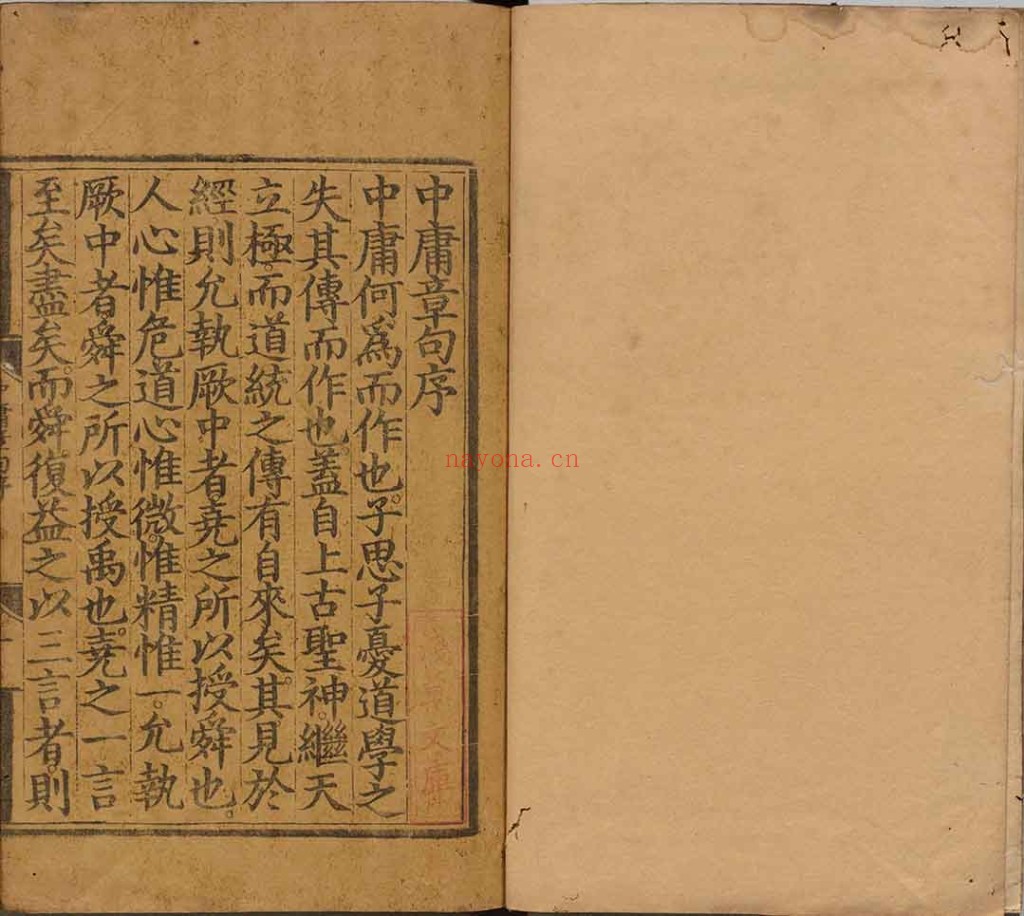 中庸章句序
中庸何爲而作也。子思子憂道學之
失其傳而作也。蓋自上古聖神。繼天
立極。而道統之傳有自來矣。其見於
經。則允執厥中者。堯之所以授舜也。
人心惟危。道心惟微。惟精惟一。允執
厥中者。舜之所以授禹也。堯之一言
至矣盡矣。而舜復益之以三言者。則
文庫
nayona.cn